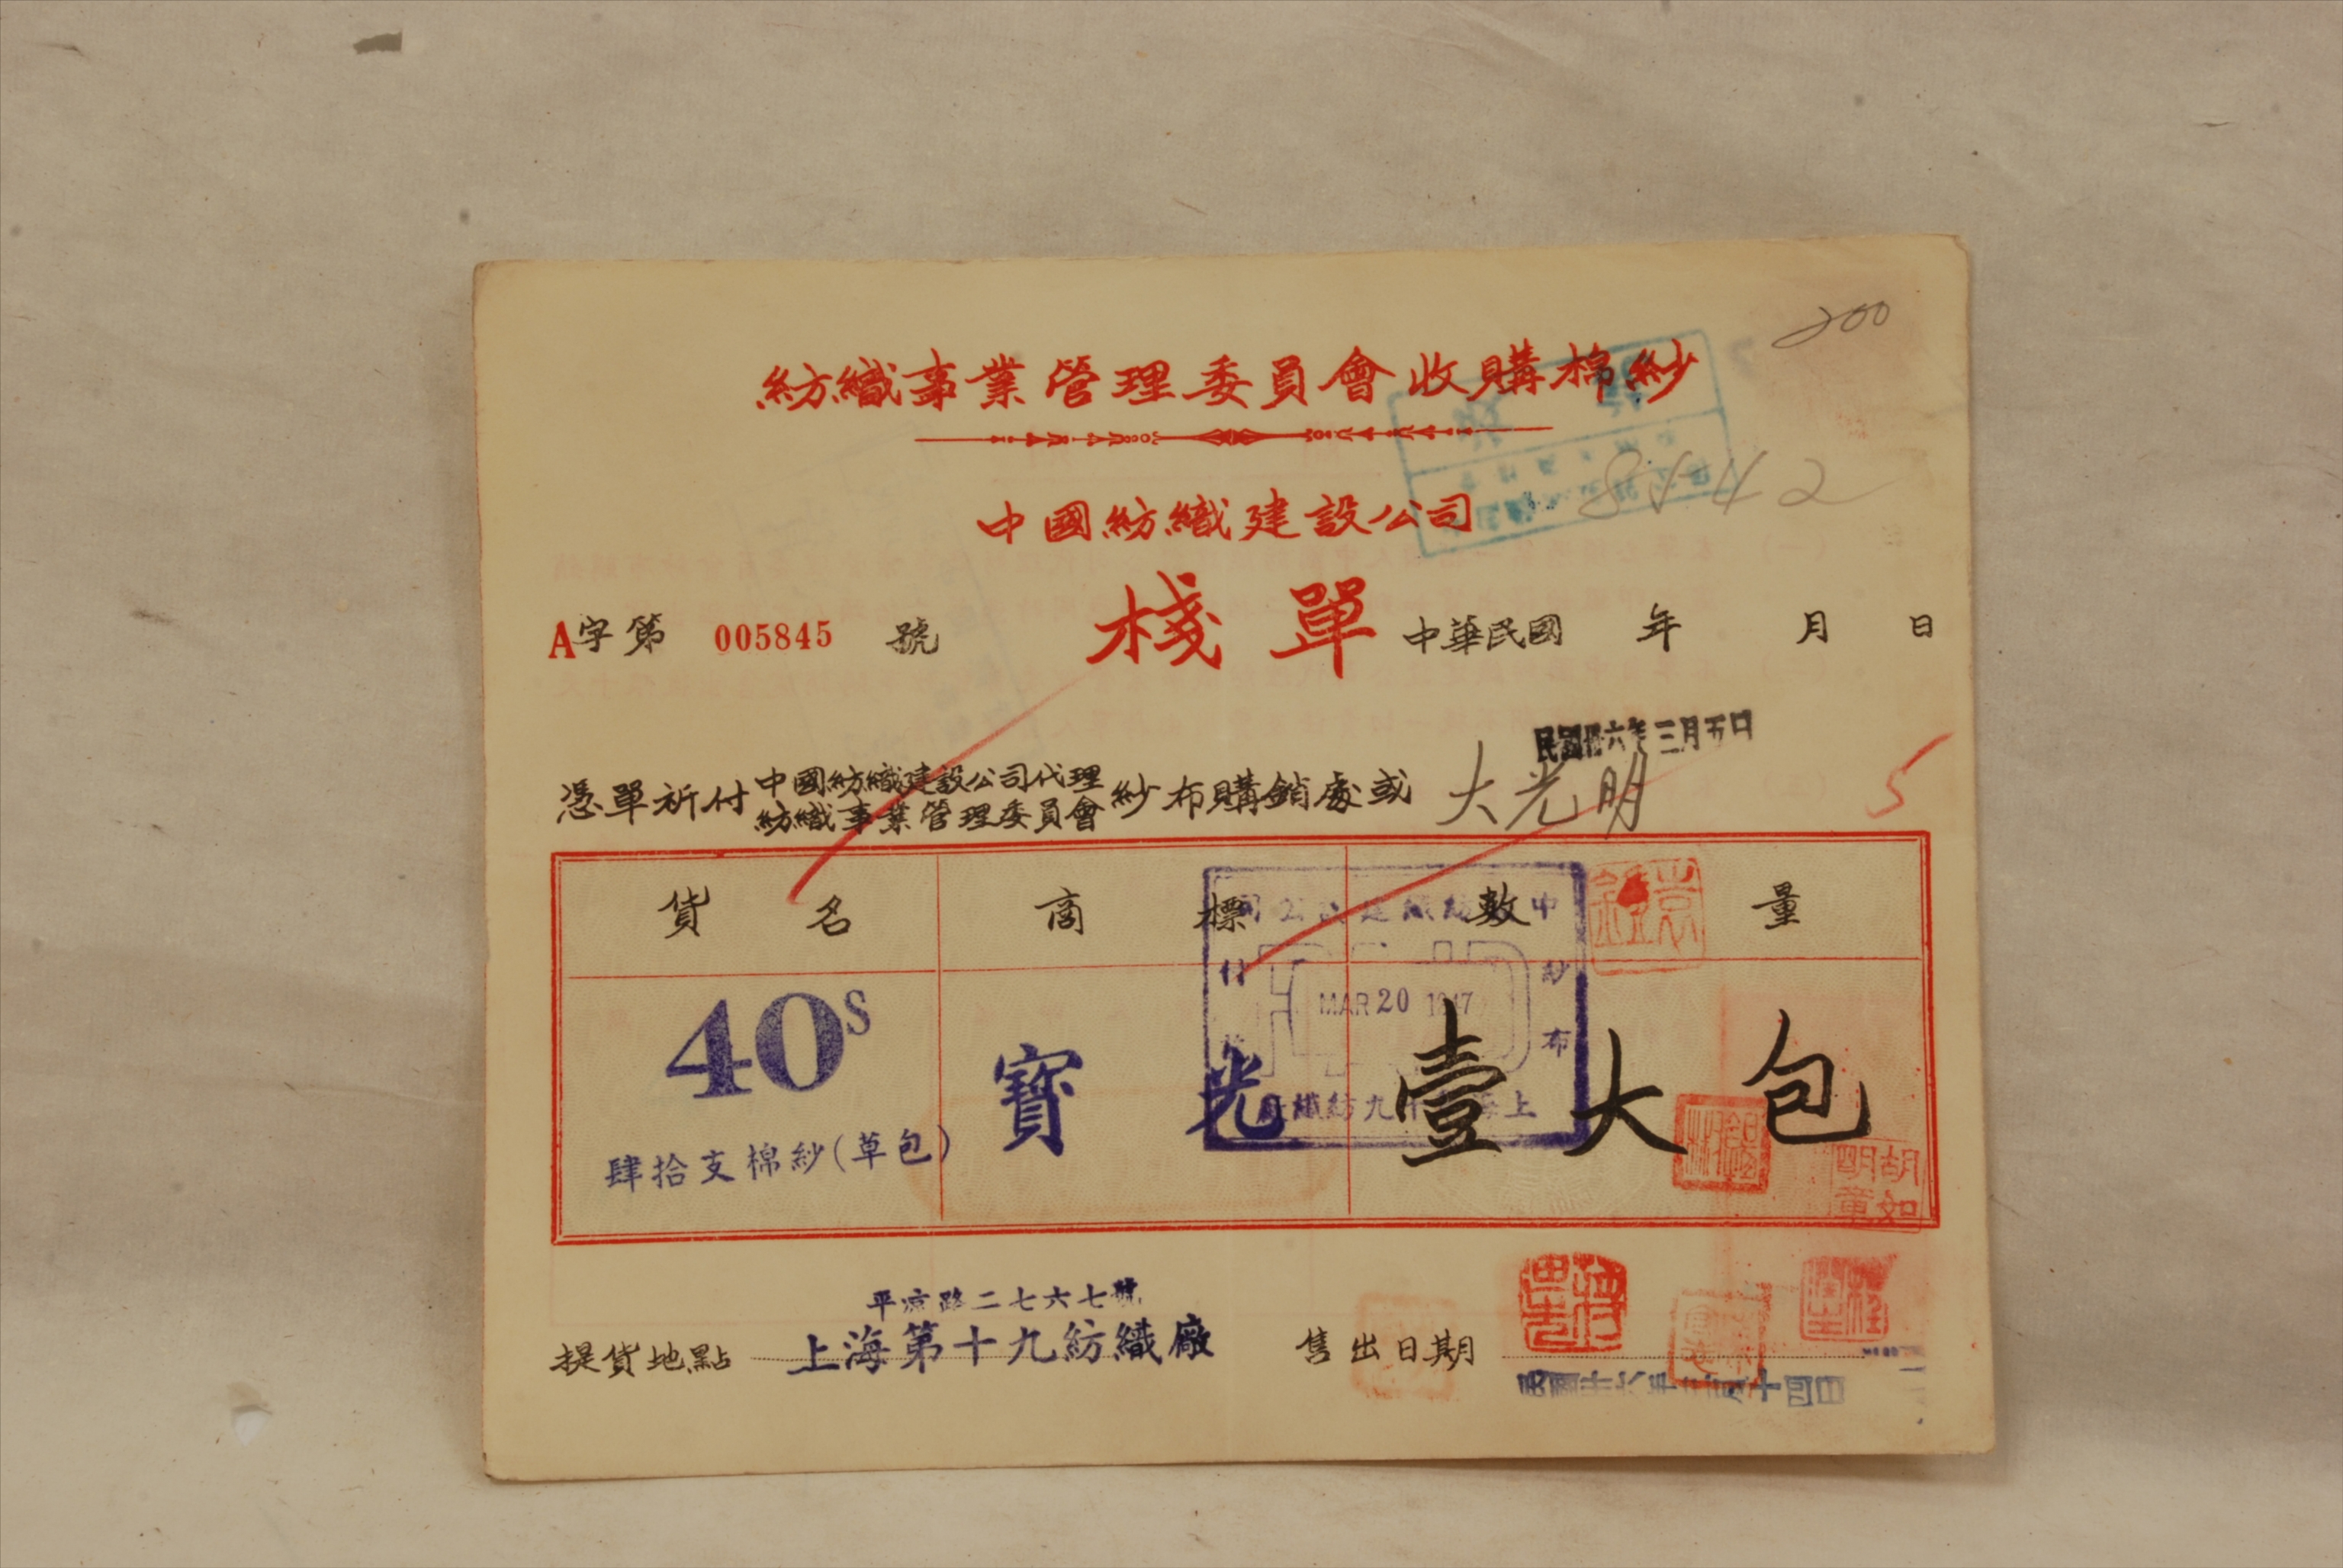 200
紡織事業管理委員會收購棉紗
中國紡織建設公司
8442
A字第 005845 號 棧單 中華民國 年 月 日
民國卅六年三月五日
憑單祈付 中國紡織建設公司代理 紡織事業管理委員會 紗布購銷處或 大光明
5
貨名 商標 數量
中紡織建設公司
紗布
付
MAR 20 1947
40S 寶光 壹大包
肆拾支棉紗(草包)
胡如明章
平凉路二七六七號
提貨地點 上海第十九紡織廠 售出日期